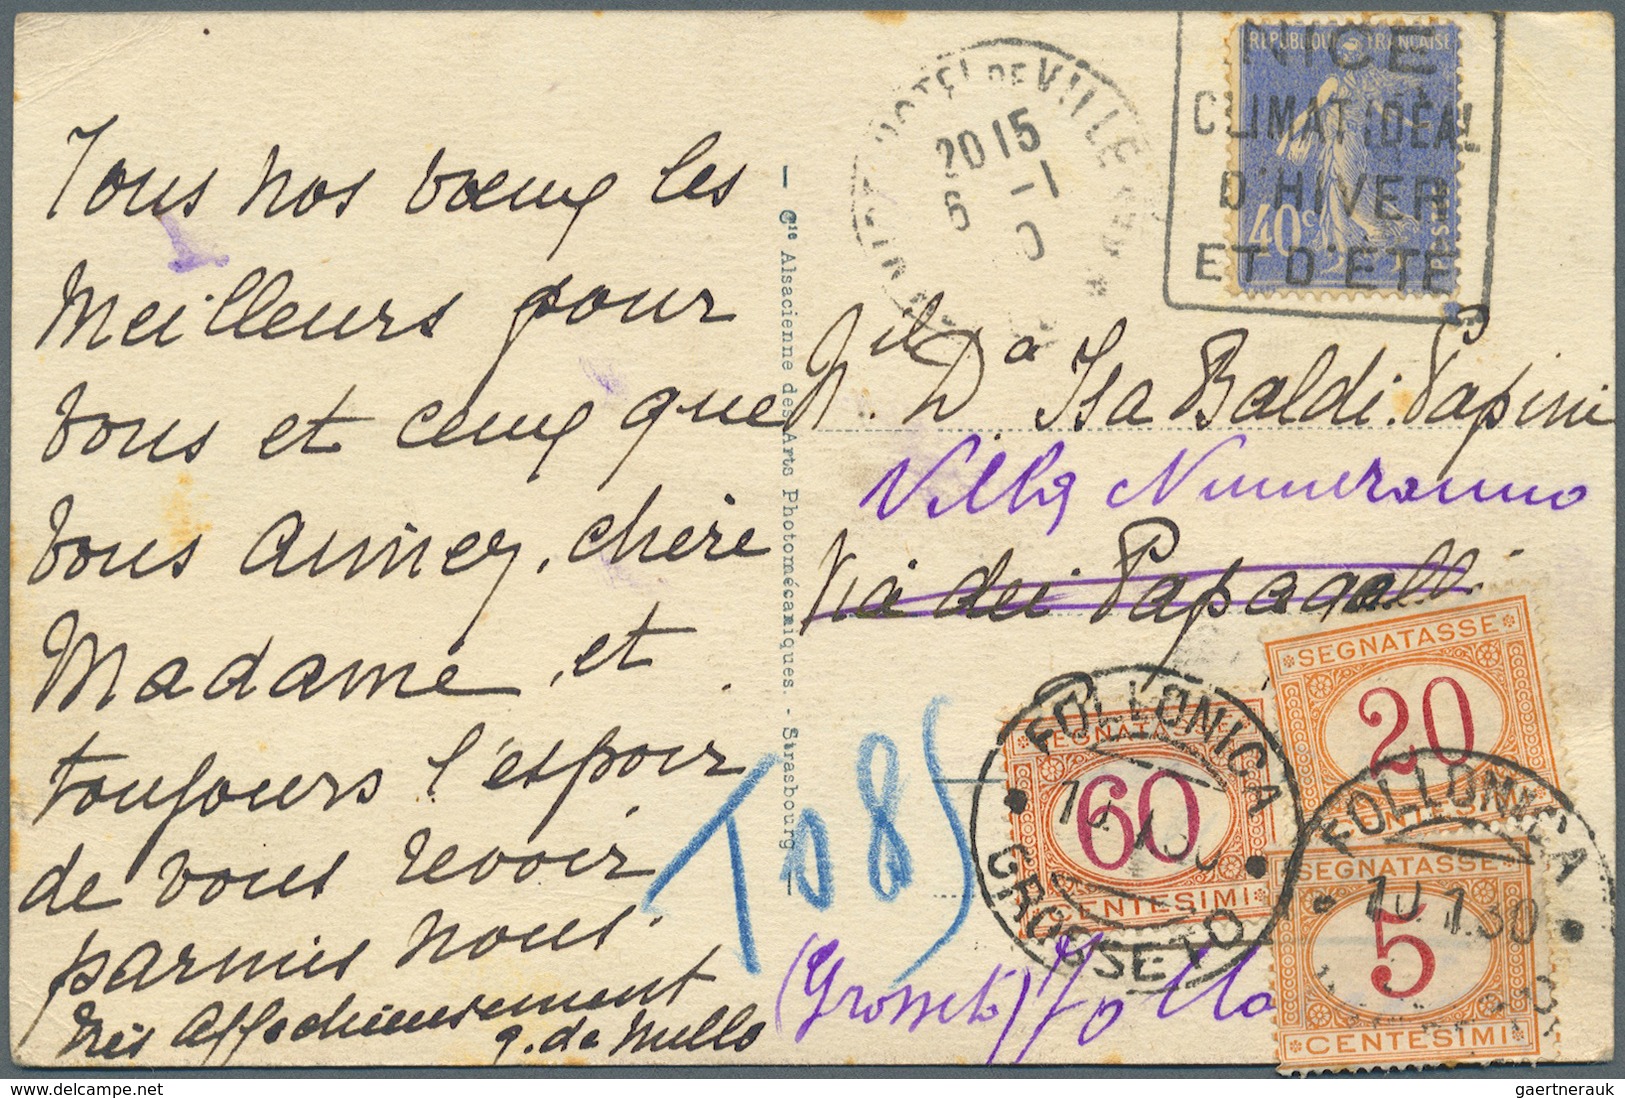 Tous nos vœux les
meilleurs pour
vous et ceux que
vous aimez, chère
Madame, et
toujours l'espoir
de vous revoir
parmis nous.
Très affectueusement
g. de Mello
T
Cie Alsacienne des Arts Photomécaniques. - Strasbourg
HOTEL DE VILLE
20 15
6 -1
NICE
CLIMAT IDÉAL
D'HIVER
ET D'ÉTÉ
REPUBLIQUE FRANÇAISE
40c
POSTES
N.il D.a Isa Baldi-Papini
Villa Numeranno
Via dei Papagalli
T 0 85
SEGNATASSE
20
SEGNATASSE
60
CENTESIMI
SEGNATASSE
5
CENTESIMI
FOLLONICA
10.1.30
GROSSETO
FOLLONICA
10.1.30
(Grosseto) Follo
gaertnerauk